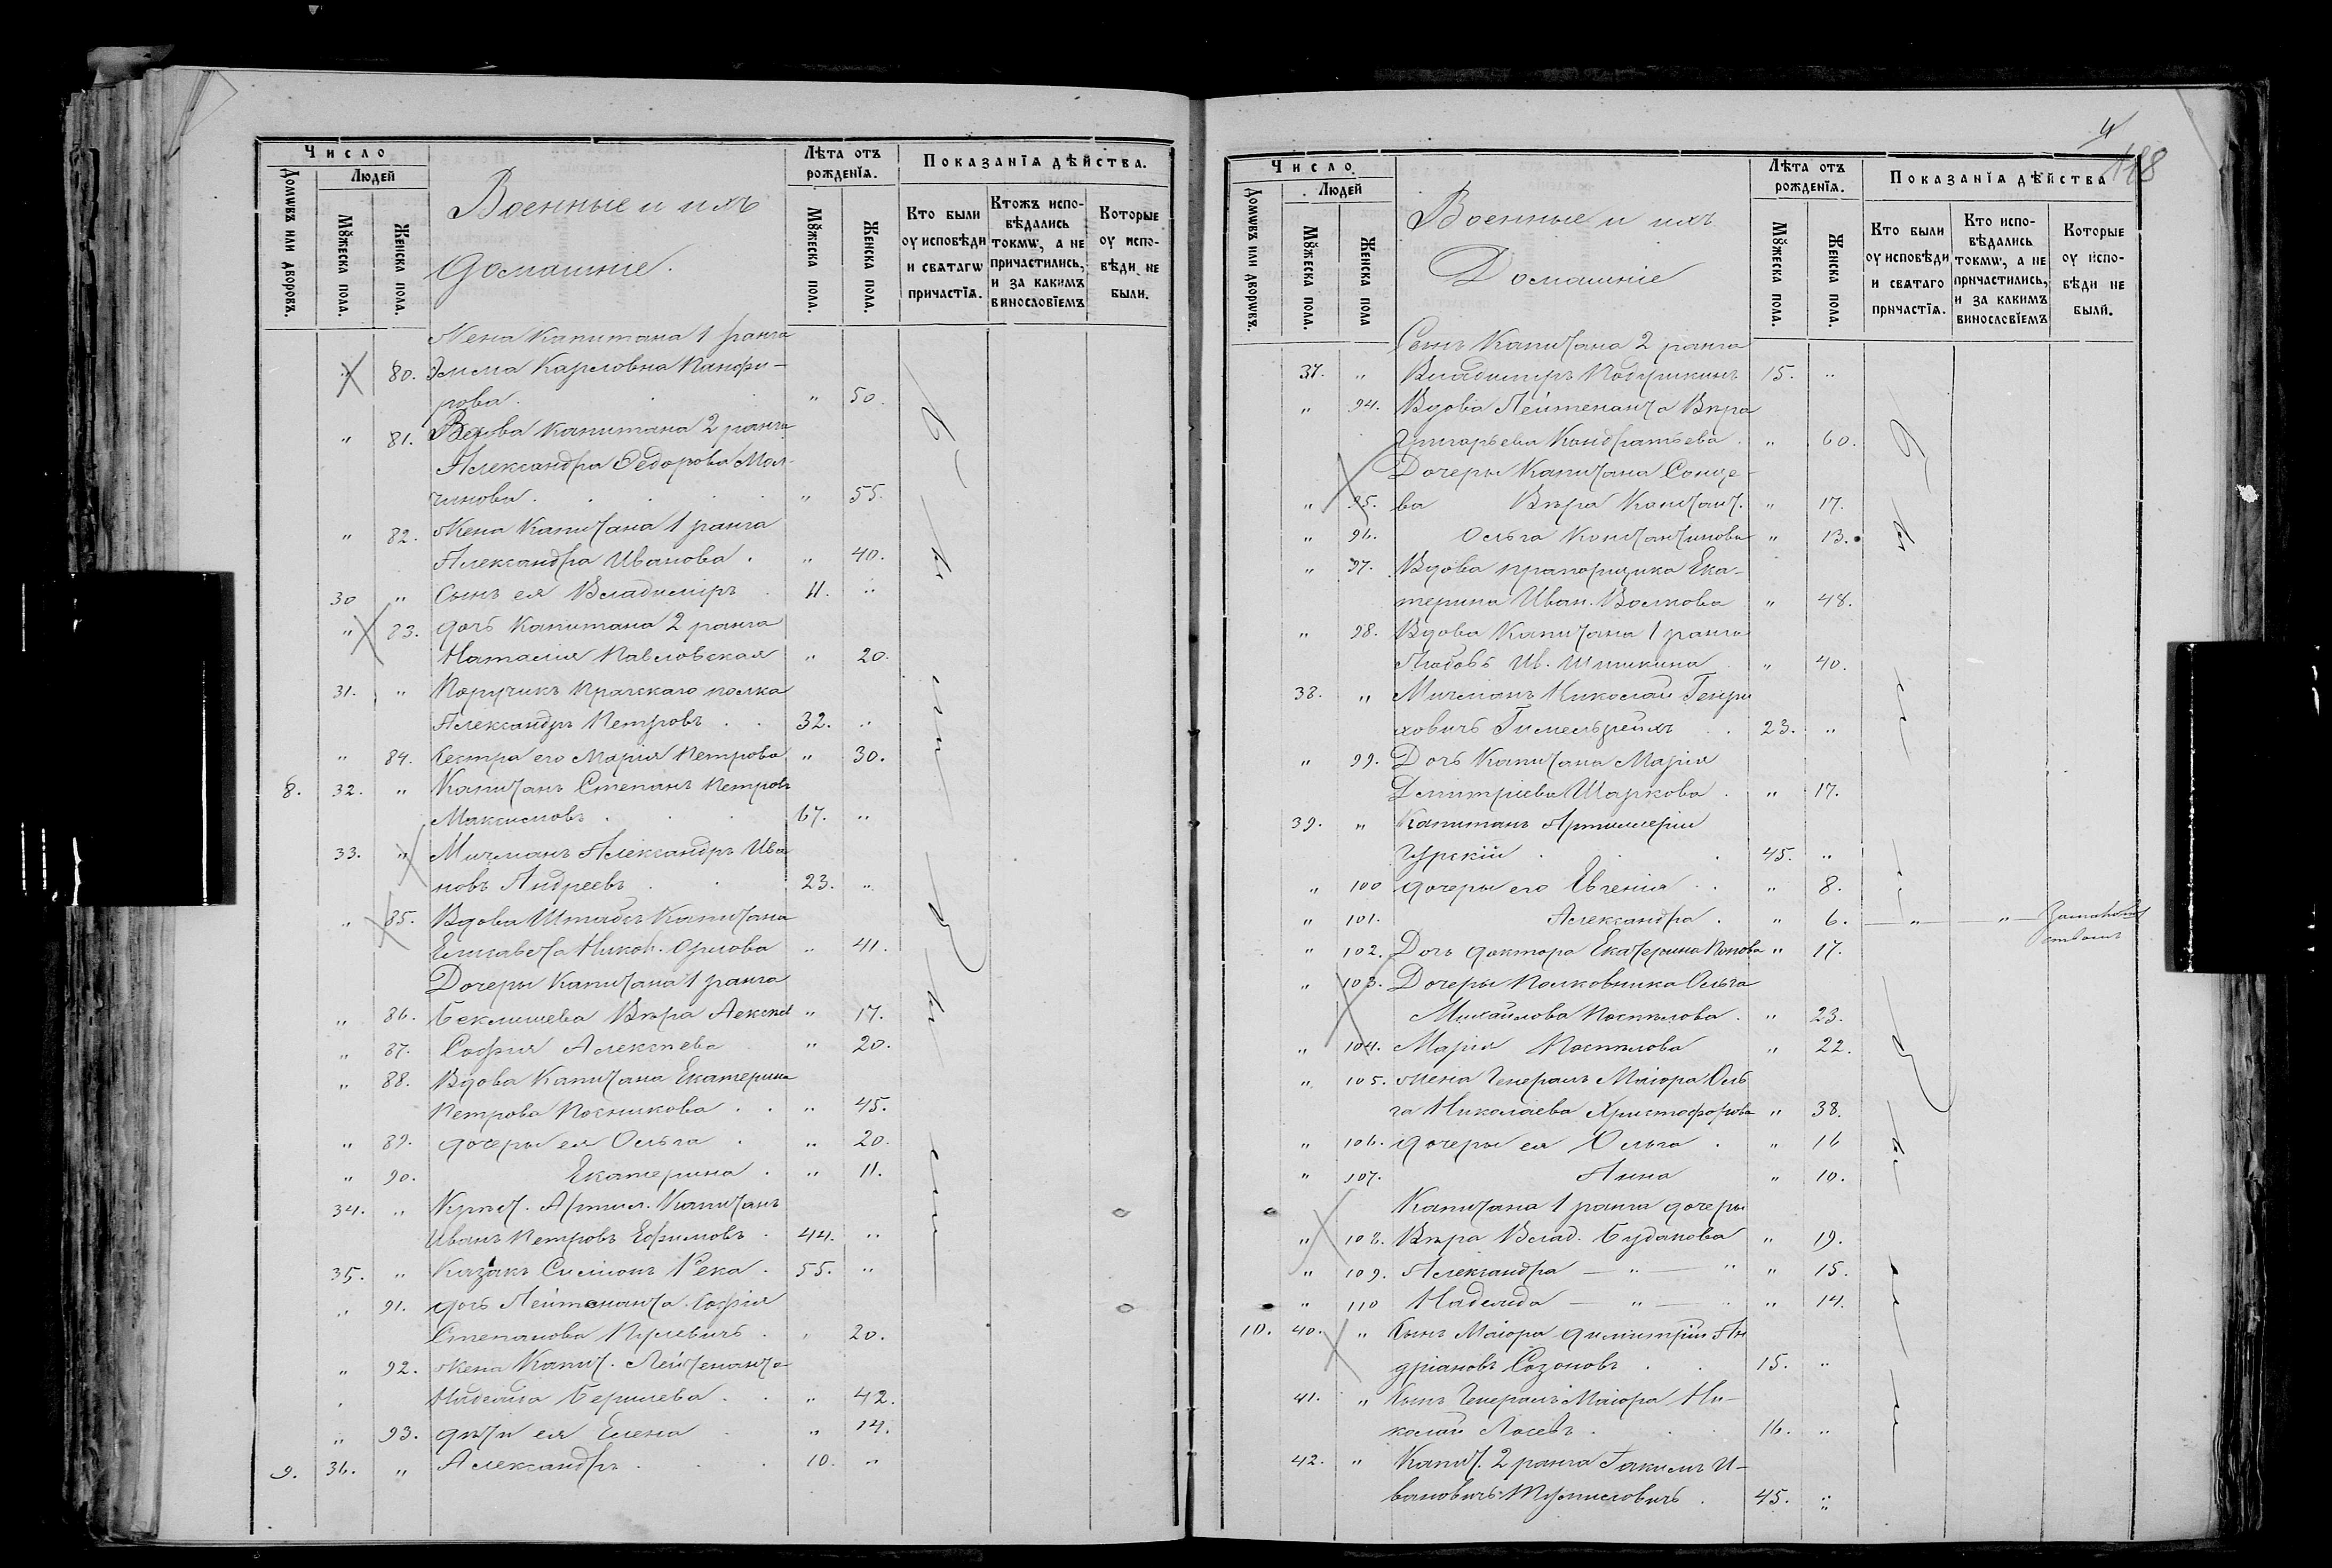 Число
Домѡвъ или дворовъ.
Людей
Мꙋжеска пола.
Женска пола.
Военные и ихъ
домашніе.
Лѣта отъ рожденїѧ.
Мꙋжеска пола.
Женска пола.
Показанїѧ дѣйства.
Кто были оу исповѣди и свѧтагѡ причастїѧ.
Ктожъ исповѣдались токмѡ, а не причастились, и за какимъ винословїемъ
Которые оу исповѣди не были.
Жена Капитана 1 ранга
" 80. Эмма Карловна Панфи-
рова. " 50.
" 81. Вдова Капитана 2 ранга
Александра Ѳедорова Мол-
чанова. " 55.
" 82. Жена Капитана 1 ранга
Александра Иванова. " 40.
30 " Сынъ ея Владиміръ 11. "
" 83. дочь Капитана 2 ранга
Наталия Павловская " 20.
31. " Поручикъ Пражскаго полка
Александръ Петровъ 32. "
" 84. Сестра его Марія Петрова " 30.
8. 32. " Капитанъ Степанъ Петровъ
Максимовъ 67. "
33. " Мичманъ Александръ Ива
новъ Андреевъ 23. "
" 85. Вдова Штабсъ Капитана
Елисавета Никол. Орлова " 41.
Дочеры Капитана 1 ранга
" 86. Беклишева Вѣра Алексѣев " 17.
" 87. София Алексѣева " 20.
" 88. Вдова Капитана Екатерина
Петрова Посникова " 45.
" 89. дочеры ея Ольга " 20.
" 90. Екатерина " 11.
34. " Крѣп. Артил. Капитанъ
Иванъ Петровъ Ефимовъ 44. "
35. " Казакъ Симеонъ Река 55. "
" 91. дочь Лейтенанта София
Степанова " 20.
" 92. жена Капит. Лейтенанта
Надежда " 42.
" 93. дѣти ея Елена " 14.
9. 36. " Александръ 10. "
Число.
Домѡвъ или дворѡвъ.
Людей
Мꙋжеска пола.
Женска пола
Военные и ихъ
Домашніе
Лѣта отъ рожденїѧ.
Мꙋжеска пола.
Женска пола.
Показанїѧ дѣйства
Кто были оу исповѣди и свѧтаго причастїѧ.
Кто исповѣдались токмѡ, а не причастились, и за какимъ винословїемъ
Которые оу исповѣди не были.
4
Сынъ Капитана 2 ранга
37. " Владиміръ Подушкинъ 15. "
" 94. Вдова Лейтенанта Вѣра
Григорьева Кондратьева " 60.
Дочеры Капитана Сонце-
" 95. ва Вѣра Констант. " 17.
" 96. Ольга Константинова " 13.
" 97. Вдова прапорщика Ека-
терина Иван. Волкова " 48.
" 98. Вдова Капитана 1 ранга
Любовь Ив. Шишкина " 40.
38. " Мичманъ Николай Генри
ховичъ Гимельрейхъ 23. "
" 99. Дочь Капитана Марія
Димитріева Шаркова " 17.
39. " Капитанъ Артиллеріи
Гурскій 45. "
" 100 дочеры его Евгенія " 8.
" 101. Александра " 6. " "
" 102. Дочь доктора Екатерина Попова " 17.
" 103. Дочеры Полковника Ольга
Михайлова Поспѣлова " 23.
" 104. Марія Поспѣлова " 22.
" 105. жена Генералъ Маіора Оль
га Николаева Христофорова " 38.
" 106. дочеры ея Ольга " 16
" 107. Анна " 10.
Капитана 1 ранга дочеры
" 108. Вѣра Влад. Будакова " 19.
" 109. Александра — " — " " 15.
" 110 Надежда — " — " " 14.
10. 40. " Сынъ Маіора Димитрій Ан
дріановъ Созоновъ 15. "
41. " Сынъ Генералъ Маіора Ни-
колай Лосевъ 16. "
42. " Капит. 2 ранга Іакимъ И-
вановичъ 45. "